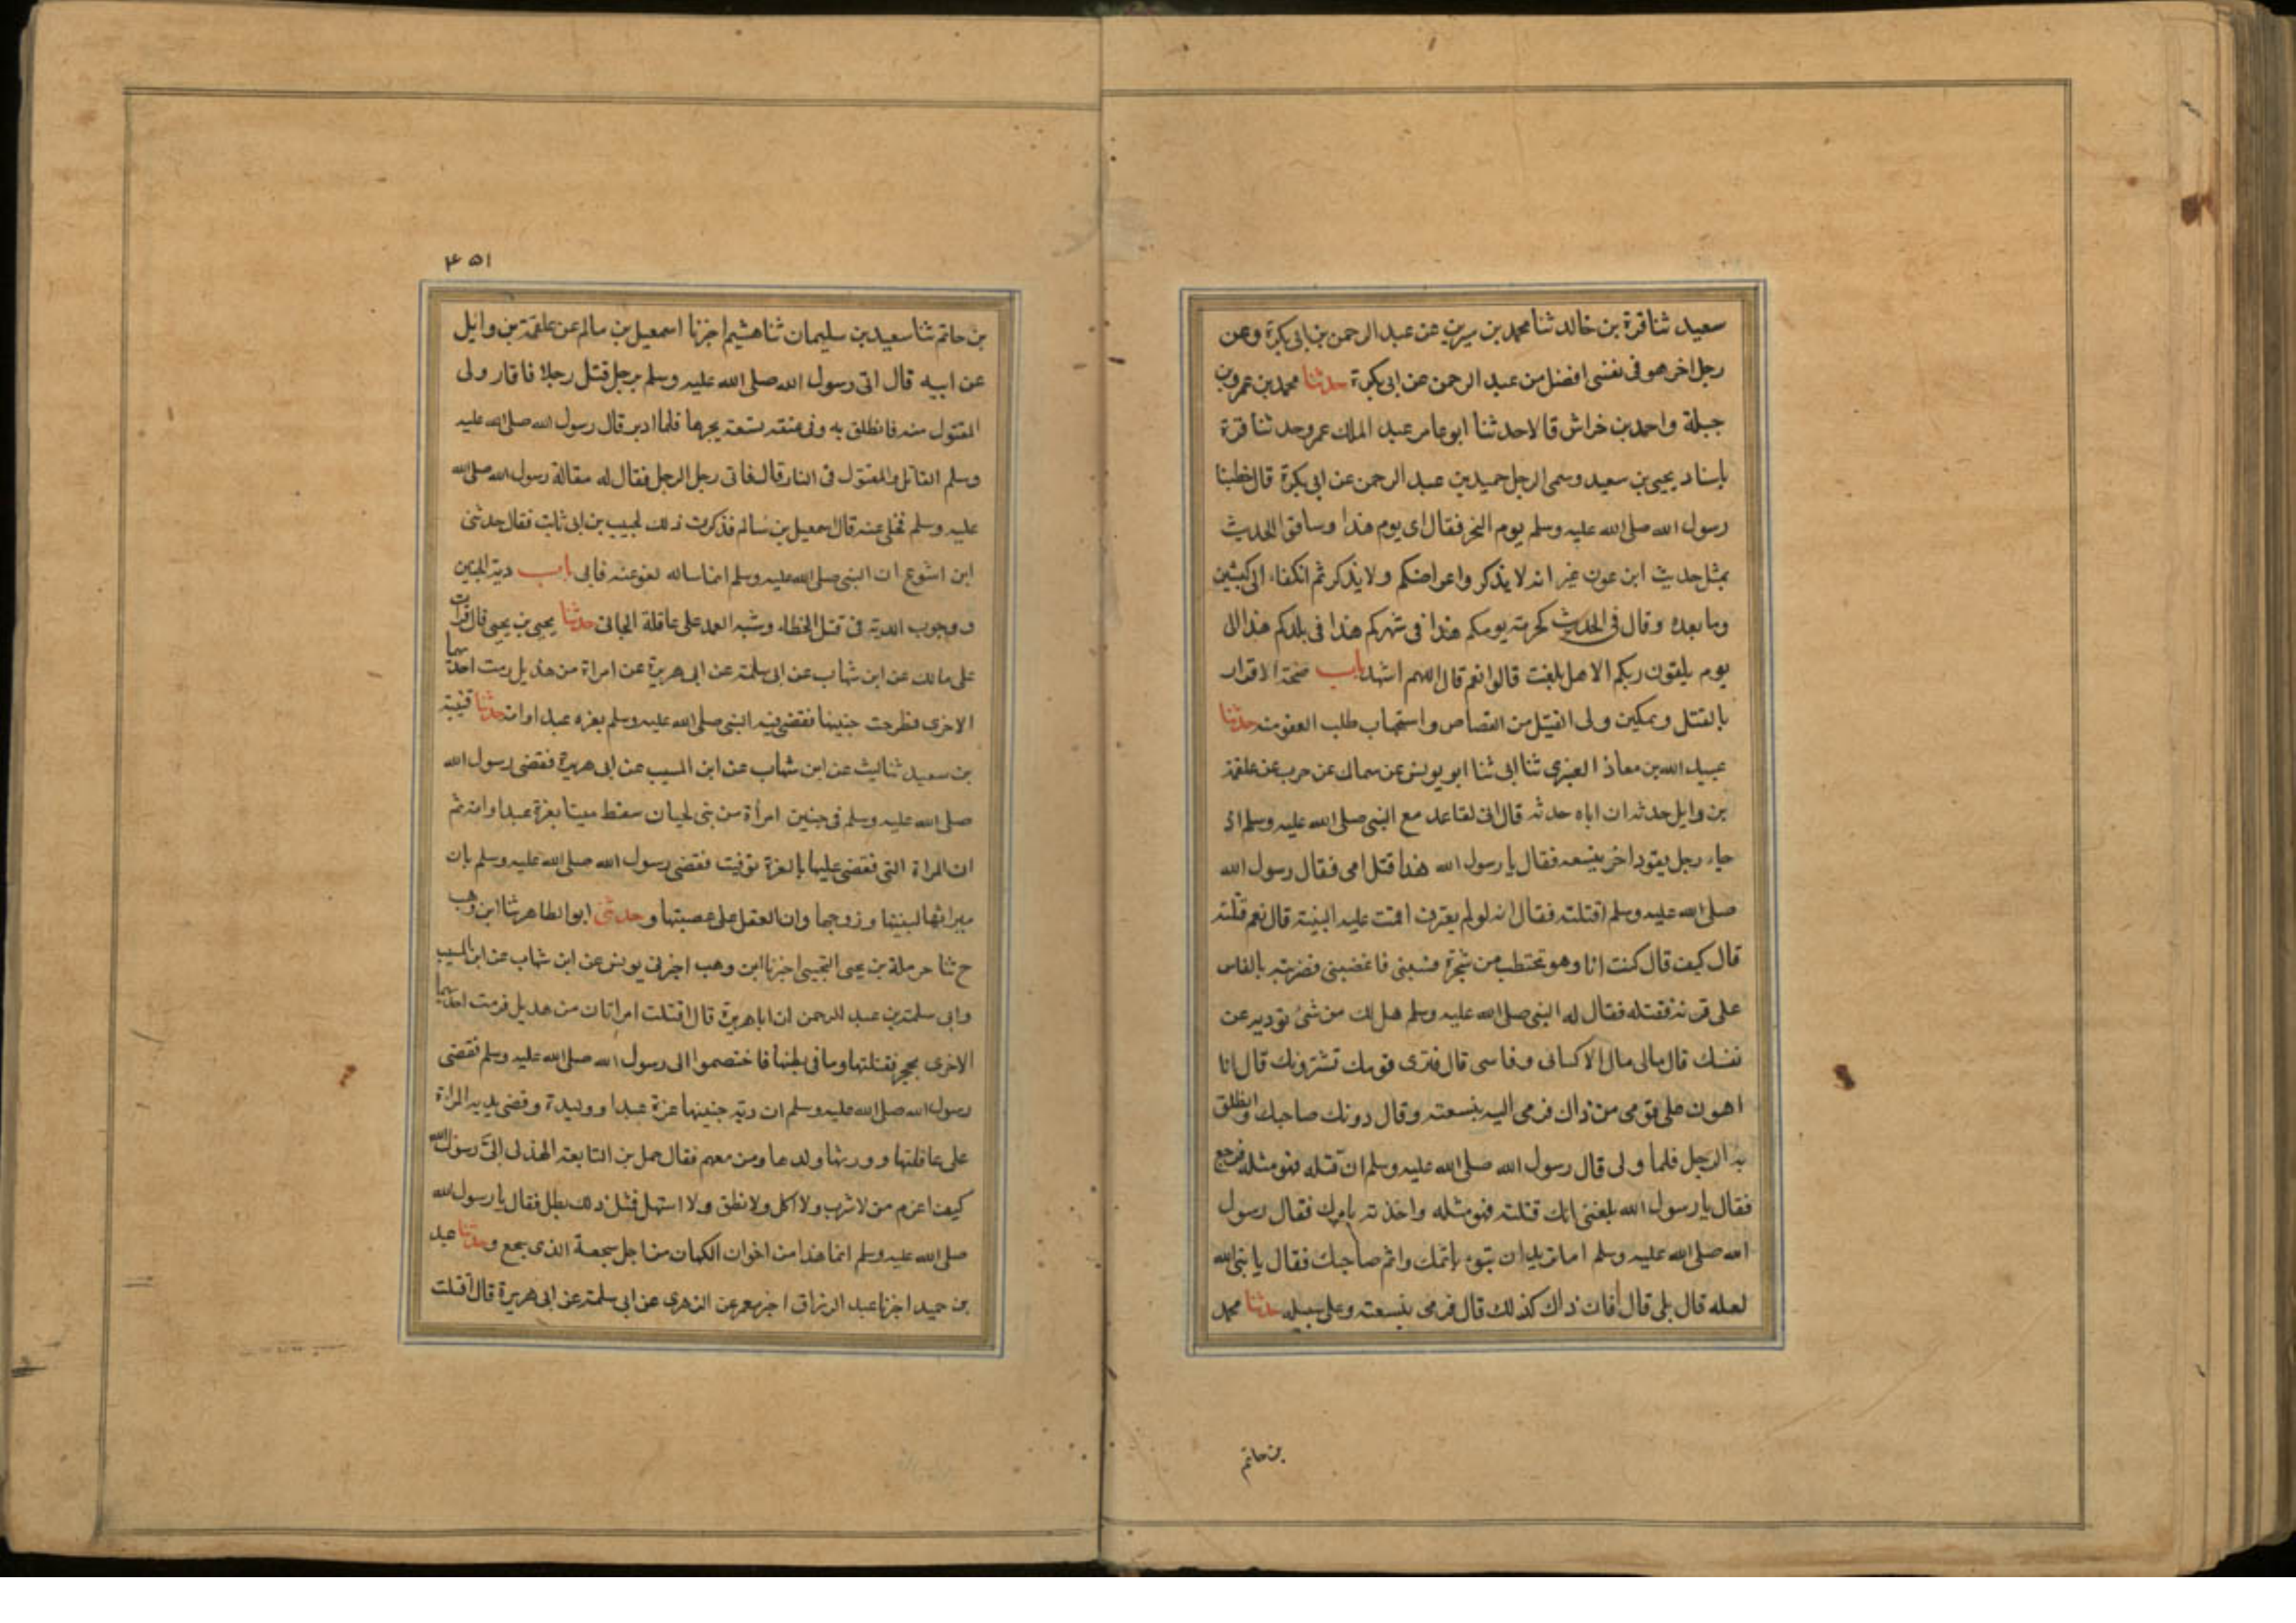 سعيد ثنا قرة بن خالد ثنا محمد بن سيرين عن عبد الرحمن بن ابى بكرة وعن
رجل اخر هو فى نفسى افضل من عبد الرحمن عن ابى بكرة حدثنا محمد بن عمرو بن
جبلة واحمد بن خراش قالا حدثنا ابو عامر عبد الملك عمر وحدثنا قرة
باسناد يحيى بن سعيد وسمى الرجل حميد بن عبد الرحمن عن ابى بكرة قال خطبنا
رسول الله صلى الله عليه وسلم يوم النحر فقال اى يوم هذا وساقوا الحديث
بمثل حديث ابن عون غير انه لا يذكر واعراضكم ولا يذكر ثم انكفاء الى كبشين
وما بعده وقال فى الحديث كحرمة يومكم هذا فى شهركم هذا فى بلدكم هذا الى
يوم يلقون ربكم الا هل بلغت قالوا نعم قال اللهم اشهد باب صحة الاقرار
بالقتل وتمكين ولى القتيل من القصاص واستحباب طلب العفو منه حدثنا
عبيد الله بن معاذ العنبرى ثنا ابى ثنا ابو يونس عن سماك عن حرب عن علقمة
بن وايل حدثه ان اباه حدثه قال انى لقاعد مع النبى صلى الله عليه وسلم اذ
جاء رجل يقود اخر بنسعه فقال يا رسول الله هذا قتل امى فقال رسول الله
صلى الله عليه وسلم اقتلته فقال انه لو لم يعترف اقمت عليه البينة قال نعم قتلته
قال كيف قال كنت انا وهو نحتطب من شجرة فسبنى فاغضبنى فضربته بالفاس
على قرنه فقتله فقال له النبى صلى الله عليه وسلم هل لك من شئ توديه عن
نفسك قال مالى مال الا كسائى وفاسى قال فترى قومك تشترونك قال انا
اهون على قومى من ذاك فرمى اليه بنسعته وقال دونك صاحبك وانطلق
به الرجل فلما ولى قال رسول الله صلى الله عليه وسلم ان قتله فهو مثله فرجع
فقال يا رسول الله بلغنى انك قتلته فهو مثله واخذته بامرك فقال رسول
الله صلى الله عليه وسلم اما تريد ان تبوء باثمك واثم صاحبك فقال يا نبى الله
لعله قال بلى قال فان ذاك كذلك قال فرمى بنسعته وعلى سبيله حدثنا محمد
بن حاتم
٤٥١
بن حاتم ثنا سعيد بن سليمان ثنا هشيم اخبرنا اسمعيل بن سالم عن علقمة بن وايل
عن ابيه قال اتى رسول الله صلى الله عليه وسلم برجل قتل رجلا فاقاد ولى
المقتول منه فانطلق به وفى عنقه نسعة يجرها فلما ادبر قال رسول الله صلى الله عليه
وسلم القاتل والمقتول فى النار قال فاتى رجل الرجل فقال له مقالة رسول الله صلى الله
عليه وسلم فخلى عنه قال اسمعيل بن سالم فذكرت ذلك لحبيب بن ابى ثابت فقال حدثنى
ابن اشوع ان النبى صلى الله عليه وسلم انما ساله لعفو عنه فابى باب دية الجنين
ووجوب الدية فى قتل الخطاء وشبه العمد على عاقلة الجانى حدثنا يحيى بن يحيى قال قرات
على مالك عن ابن شهاب عن ابى سلمة عن ابى هريرة عن امراة من هذيل رمت احدهما
الاخرى فطرحت جنينها فقضى فيه النبى صلى الله عليه وسلم بغره عبد او امة حدثنا قتيبة
بن سعيد ثنا ليث عن ابن شهاب عن ابن المسيب عن ابى هريرة فقضى رسول الله
صلى الله عليه وسلم فى جنين امرأة من بنى لحيان سقط ميتا بغرة عبد او امة ثم
ان المراة التى فقضى عليها بالغرة توفيت فقضى رسول الله صلى الله عليه وسلم بان
ميراثها لبنيها وزوجها وان العقل على عصبتها وحدثنى ابو الطاهر ثنا ابن وهب
ح ثنا حرملة بن يحيى التجيبى اخبرنا ابن وهب اخبرنى يونس عن ابن شهاب عن ابن المسيب
وابى سلمة بن عبد الرحمن ان ابا هريرة قال اقتتلت امراتان من هذيل فرمت احدهما
الاخرى بحجر فقتلتها وما فى بطنها فاختصموا الى رسول الله صلى الله عليه وسلم فقضى
رسول الله صلى الله عليه وسلم ان دية جنينها غرة عبد او وليدة وقضى بدية المراة
على عاقلتها وورثها ولدها ومن معهم فقال حمل بن النابغة الهذلى الىَّ رسول الله
كيف اغرم من لا شرب ولا اكل ولا نطق ولا استهل فمثل ذلك بطل فقال يا رسول الله
صلى الله عليه وسلم انما هذا من اخوان الكهان من اجل سجعه الذى سجع وحدثنا عبد
بن حميد اخبرنا عبد الرزاق اخبر معمر عن الزهرى عن ابى سلمة عن ابى هريرة قال اقتلت